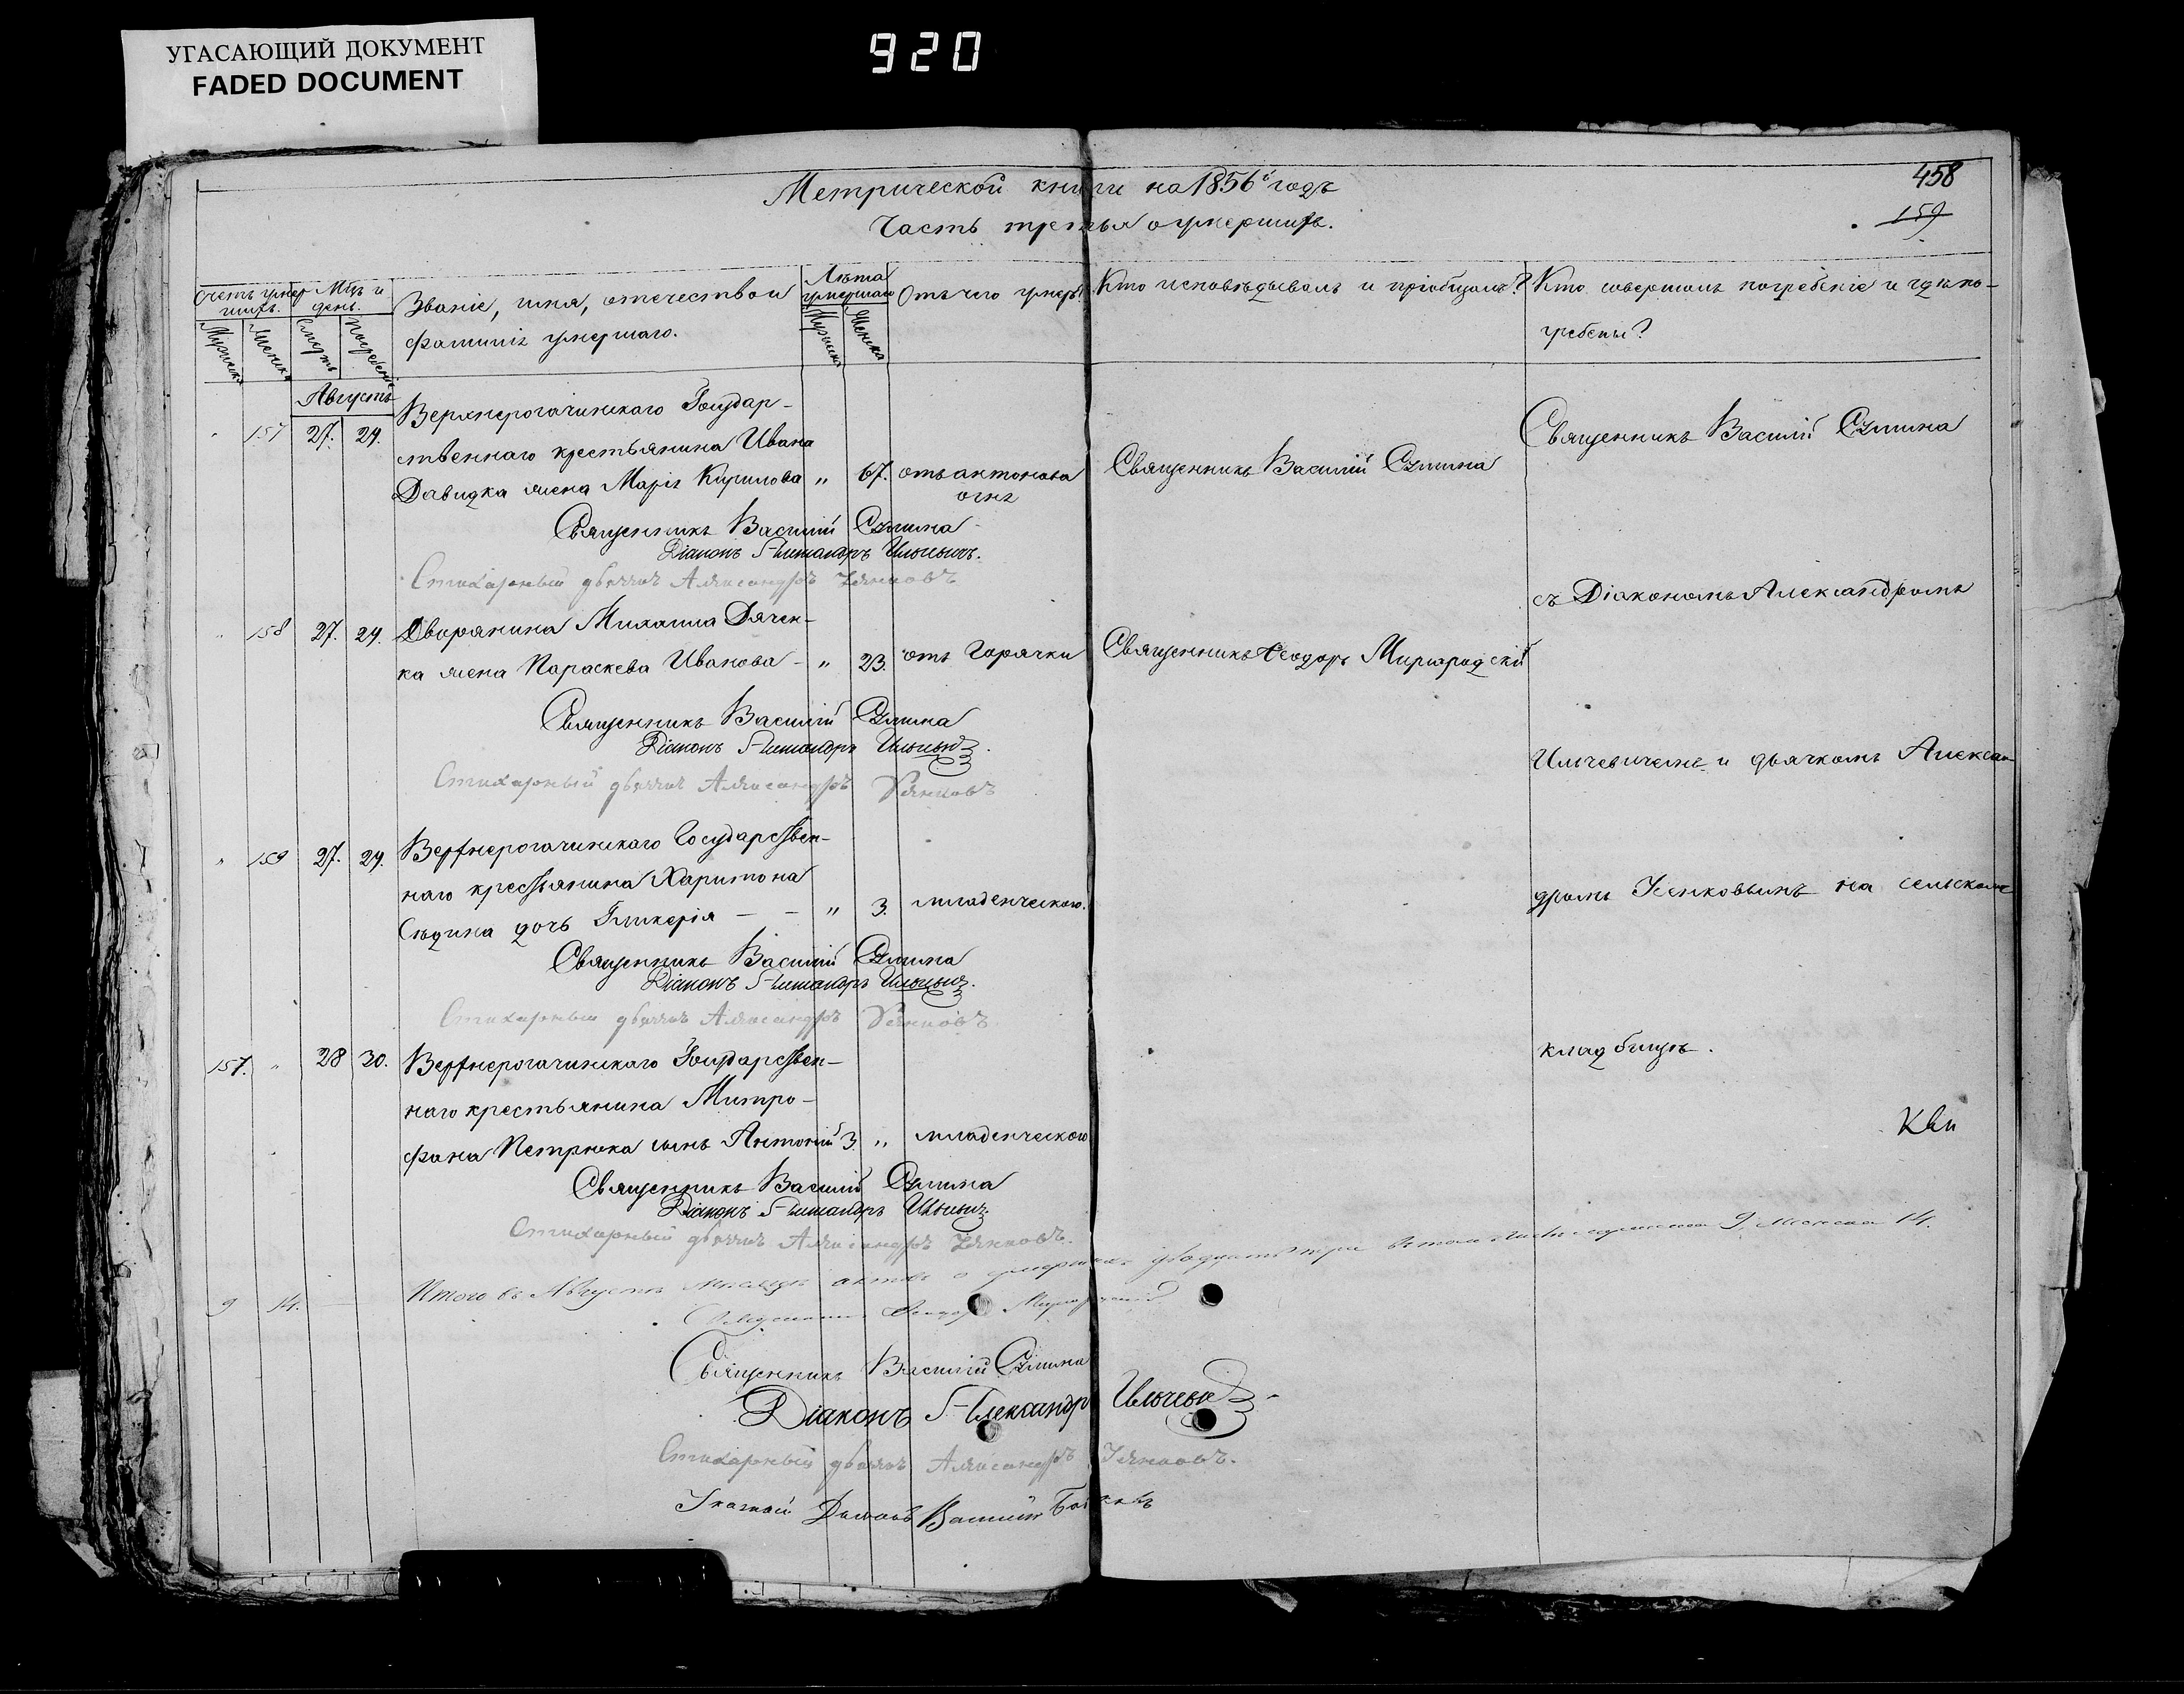 УГАСАЮЩИЙ ДОКУМЕНТ
FADED DOCUMENT
920
458
159
Метрической книги на 1856й годъ
Часть третья о умершихъ.
Счетъ умер-
шихъ.
Мужеска
Женска
Мцъ и
день.
Смерть
Погребенія
Званіе, имя, отечество и
фамилія умершаго.
Лѣта
умершаго
Мужеска
Женска
Отъ чего умеръ?
Кто исповѣдывалъ и пріобщалъ?
Кто совершалъ погребеніе и гдѣ по-
гребены?
Августъ
157 27. 29.
Верхнерогачинскаго Государ-
ственнаго крестьянина Ивана
Давидка жена Марія Кирилова " 67. отъ антонова
огня
Священникъ Василій Сулима
Священникъ Василій Сулима
Священникъ Василій Сулима
Діаконъ Александръ Ильчевичъ.
Стихарный дьячокъ Александръ Усенковъ
съ Діакономъ Александромъ
" 158 27. 29. Дворянина Михаила Дячен-
ка жена Параскева Иванова - " 23. отъ Горячки
Священникъ Ѳеодоръ Миргородскій
Священникъ Василій Сулима
Діаконъ Александръ Ильчевичъ.
Стихарный дьячокъ Александръ Усенковъ
Ильчевичемъ и дьячкомъ Алексан-
" 159 27. 29. Верхнерогачинскаго Государствен-
наго крестьянина Харитона
Сѣдина дочь Гликерія - - " 3. младенческаго.
дромъ Усенковымъ на сельскомъ
Священникъ Василій Сулима
Діаконъ Александръ Ильчевичъ.
Стихарный дьячокъ Александръ Усенковъ.
кладбищѣ.
157. " 28 30. Верхнерогачинскаго Государствен-
наго крестьянина Митро-
фана Петрика сынъ Антоній 3. " младенческаго
Священникъ Василій Сулима
Діаконъ Александръ Ильчевичъ.
Стихарный дьячокъ Александръ Усенковъ.
9 14. Итого въ Августѣ мѣсяцѣ актовъ о умершихъ двадцать три въ томъ числѣ мужеска 9. женска 14.
Священникъ Ѳеодоръ Миргородскій
Священникъ Василій Сулима
Діаконъ Александръ Ильчевичъ
Стихарный дьячокъ Александръ Усенковъ.
Василій